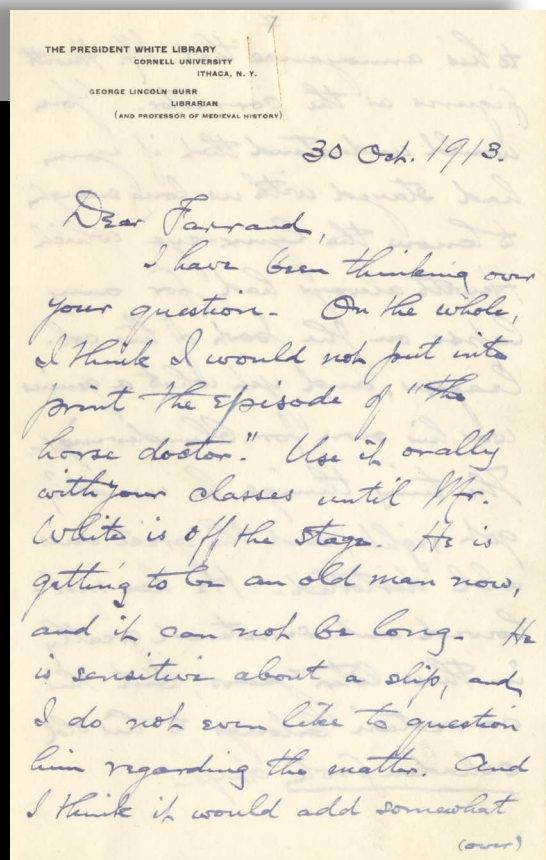 7
THE PRESIDENT WHITE LIBRARY
CORNELL UNIVERSITY
ITHACA, N. Y.
GEORGE LINCOLN BURR
LIBRARIAN
(AND PROFESSOR OF MEDIEVAL HISTORY)
30 Oct. 1913.
Dear Farrand,
I have been thinking over
your question. On the whole,
I think I would not put into
print the episode of "the
horse doctor." Use it orally
with your classes until Mr.
White is off the stage. He is
getting to be an old man now,
and it can not be long. He
is sensitive about a slip, and
I do not even like to question
him regarding the matter. And
I think it would add somewhat
(over)